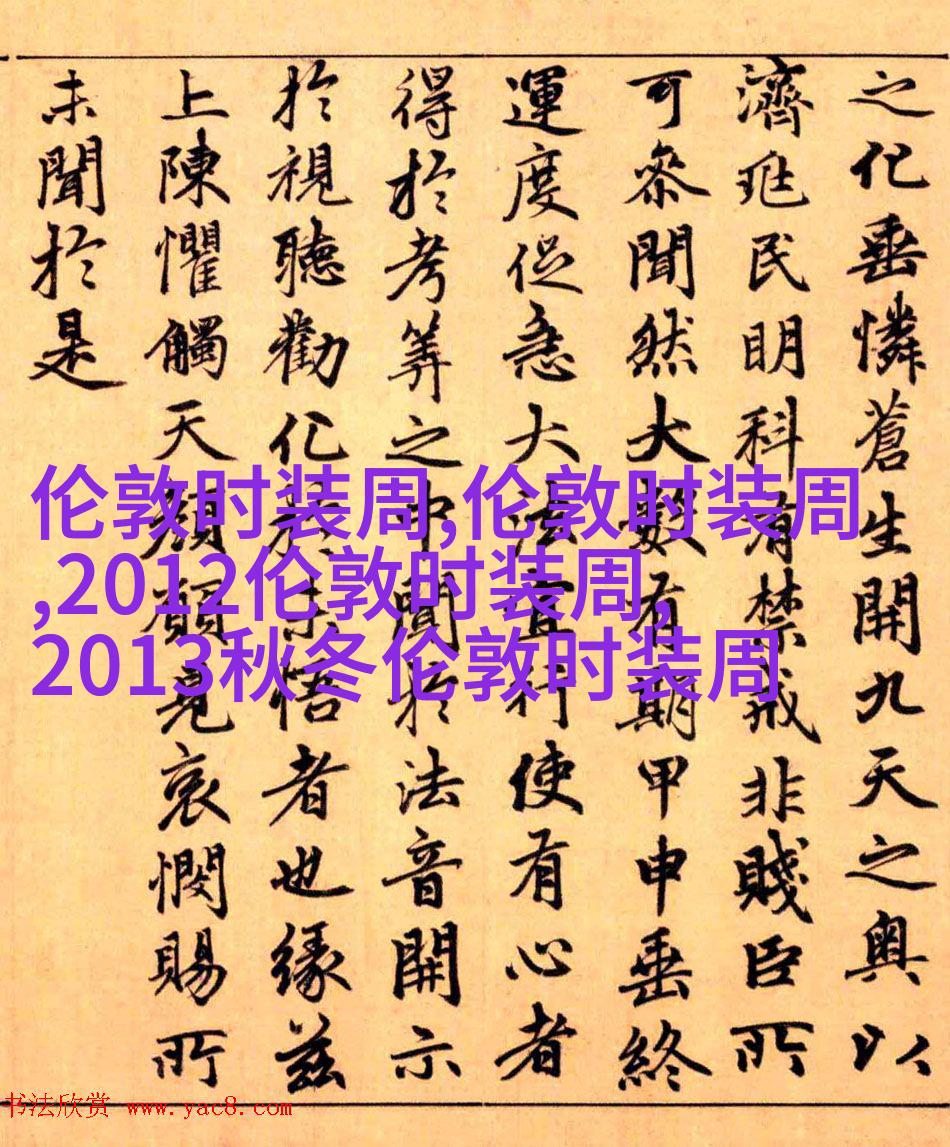 之化垂憐蒼生開九天之奥以
濟兆民明科有禁戒非賤臣所
可参聞然大數有期甲申垂終
運度促急大法宜行使有心者
得於考筭之中聞於法音開示
於視聽勸化於未悟者也緣兹
上陳懼觸天顔願見哀憫賜所
未聞於是
伦敦时装周,伦敦时装周
,2012伦敦时装周,
2013秋冬伦敦时装周
书法欣赏 www.yac8.com